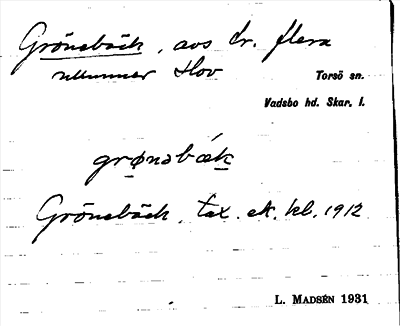 Grönebäck, avs fr. flera
nummer Hov
Torsö sn.
Vadsbo hd. Skar. l.
grønəbæk
Grönebäck, tax. ek. kb. 1912
L. MADSÉN 1931